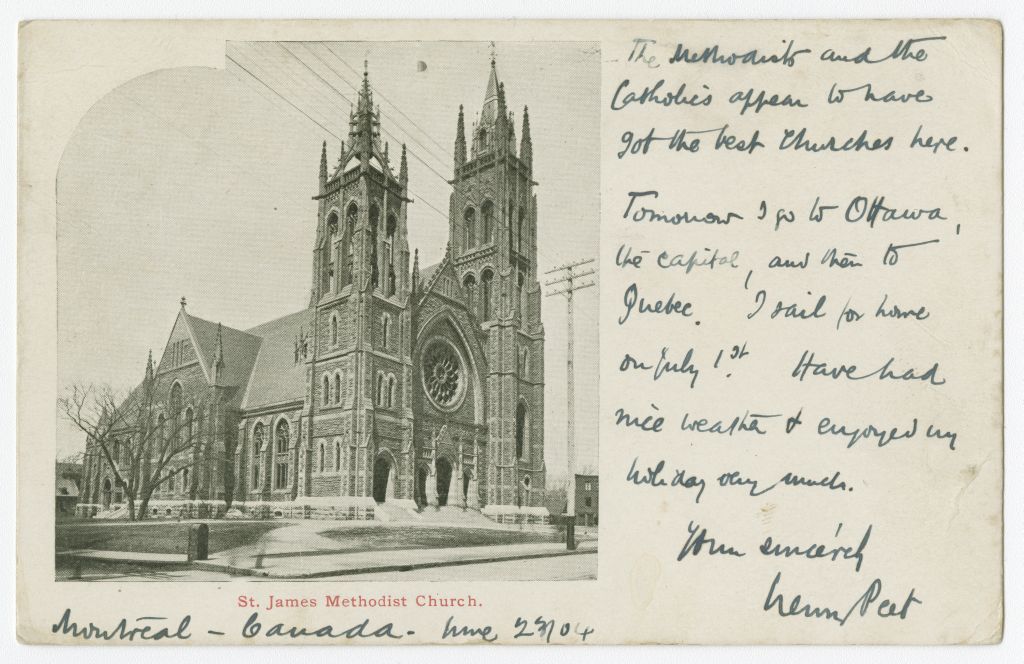 The Methodists and the
Catholics appear to have
got the best Churches here.
Tomorrow I go to Ottawa,
the capital, and then to
Quebec. I sail for home
on July 1st. Have had
nice weather & enjoyed my
holiday very much.
Yours sincerely
Henry Peet
St. James Methodist Church.
Montréal - Canada - June 23/04